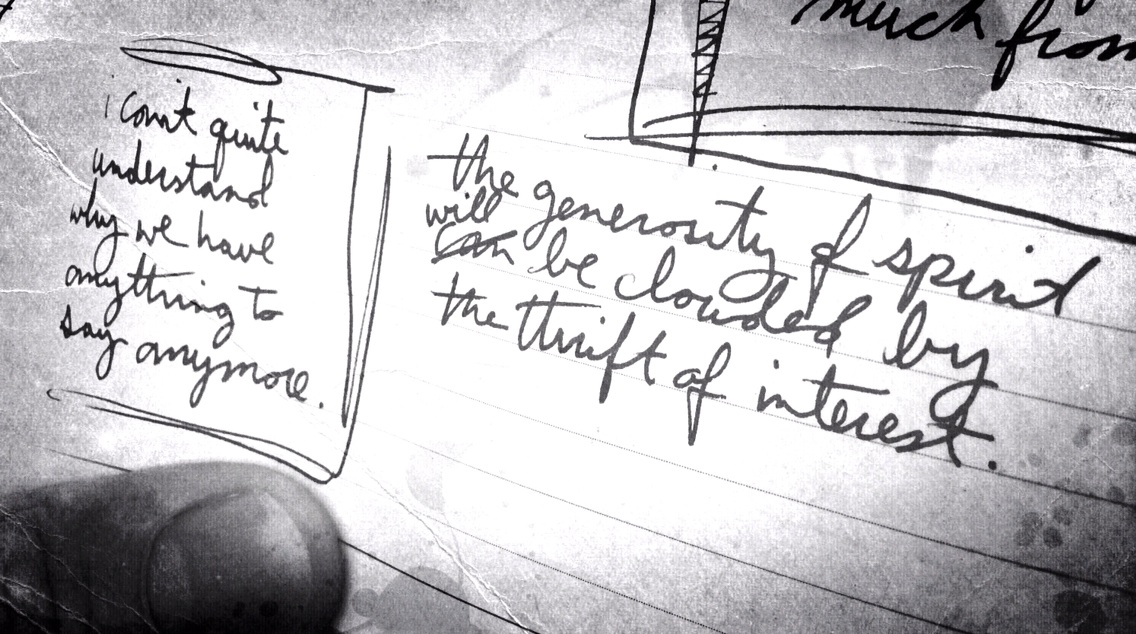 much from
i can't quite
understand
why we have
anything to
say anymore.
the generosity of spirit
will
can be clouded by
the thrift of interest.